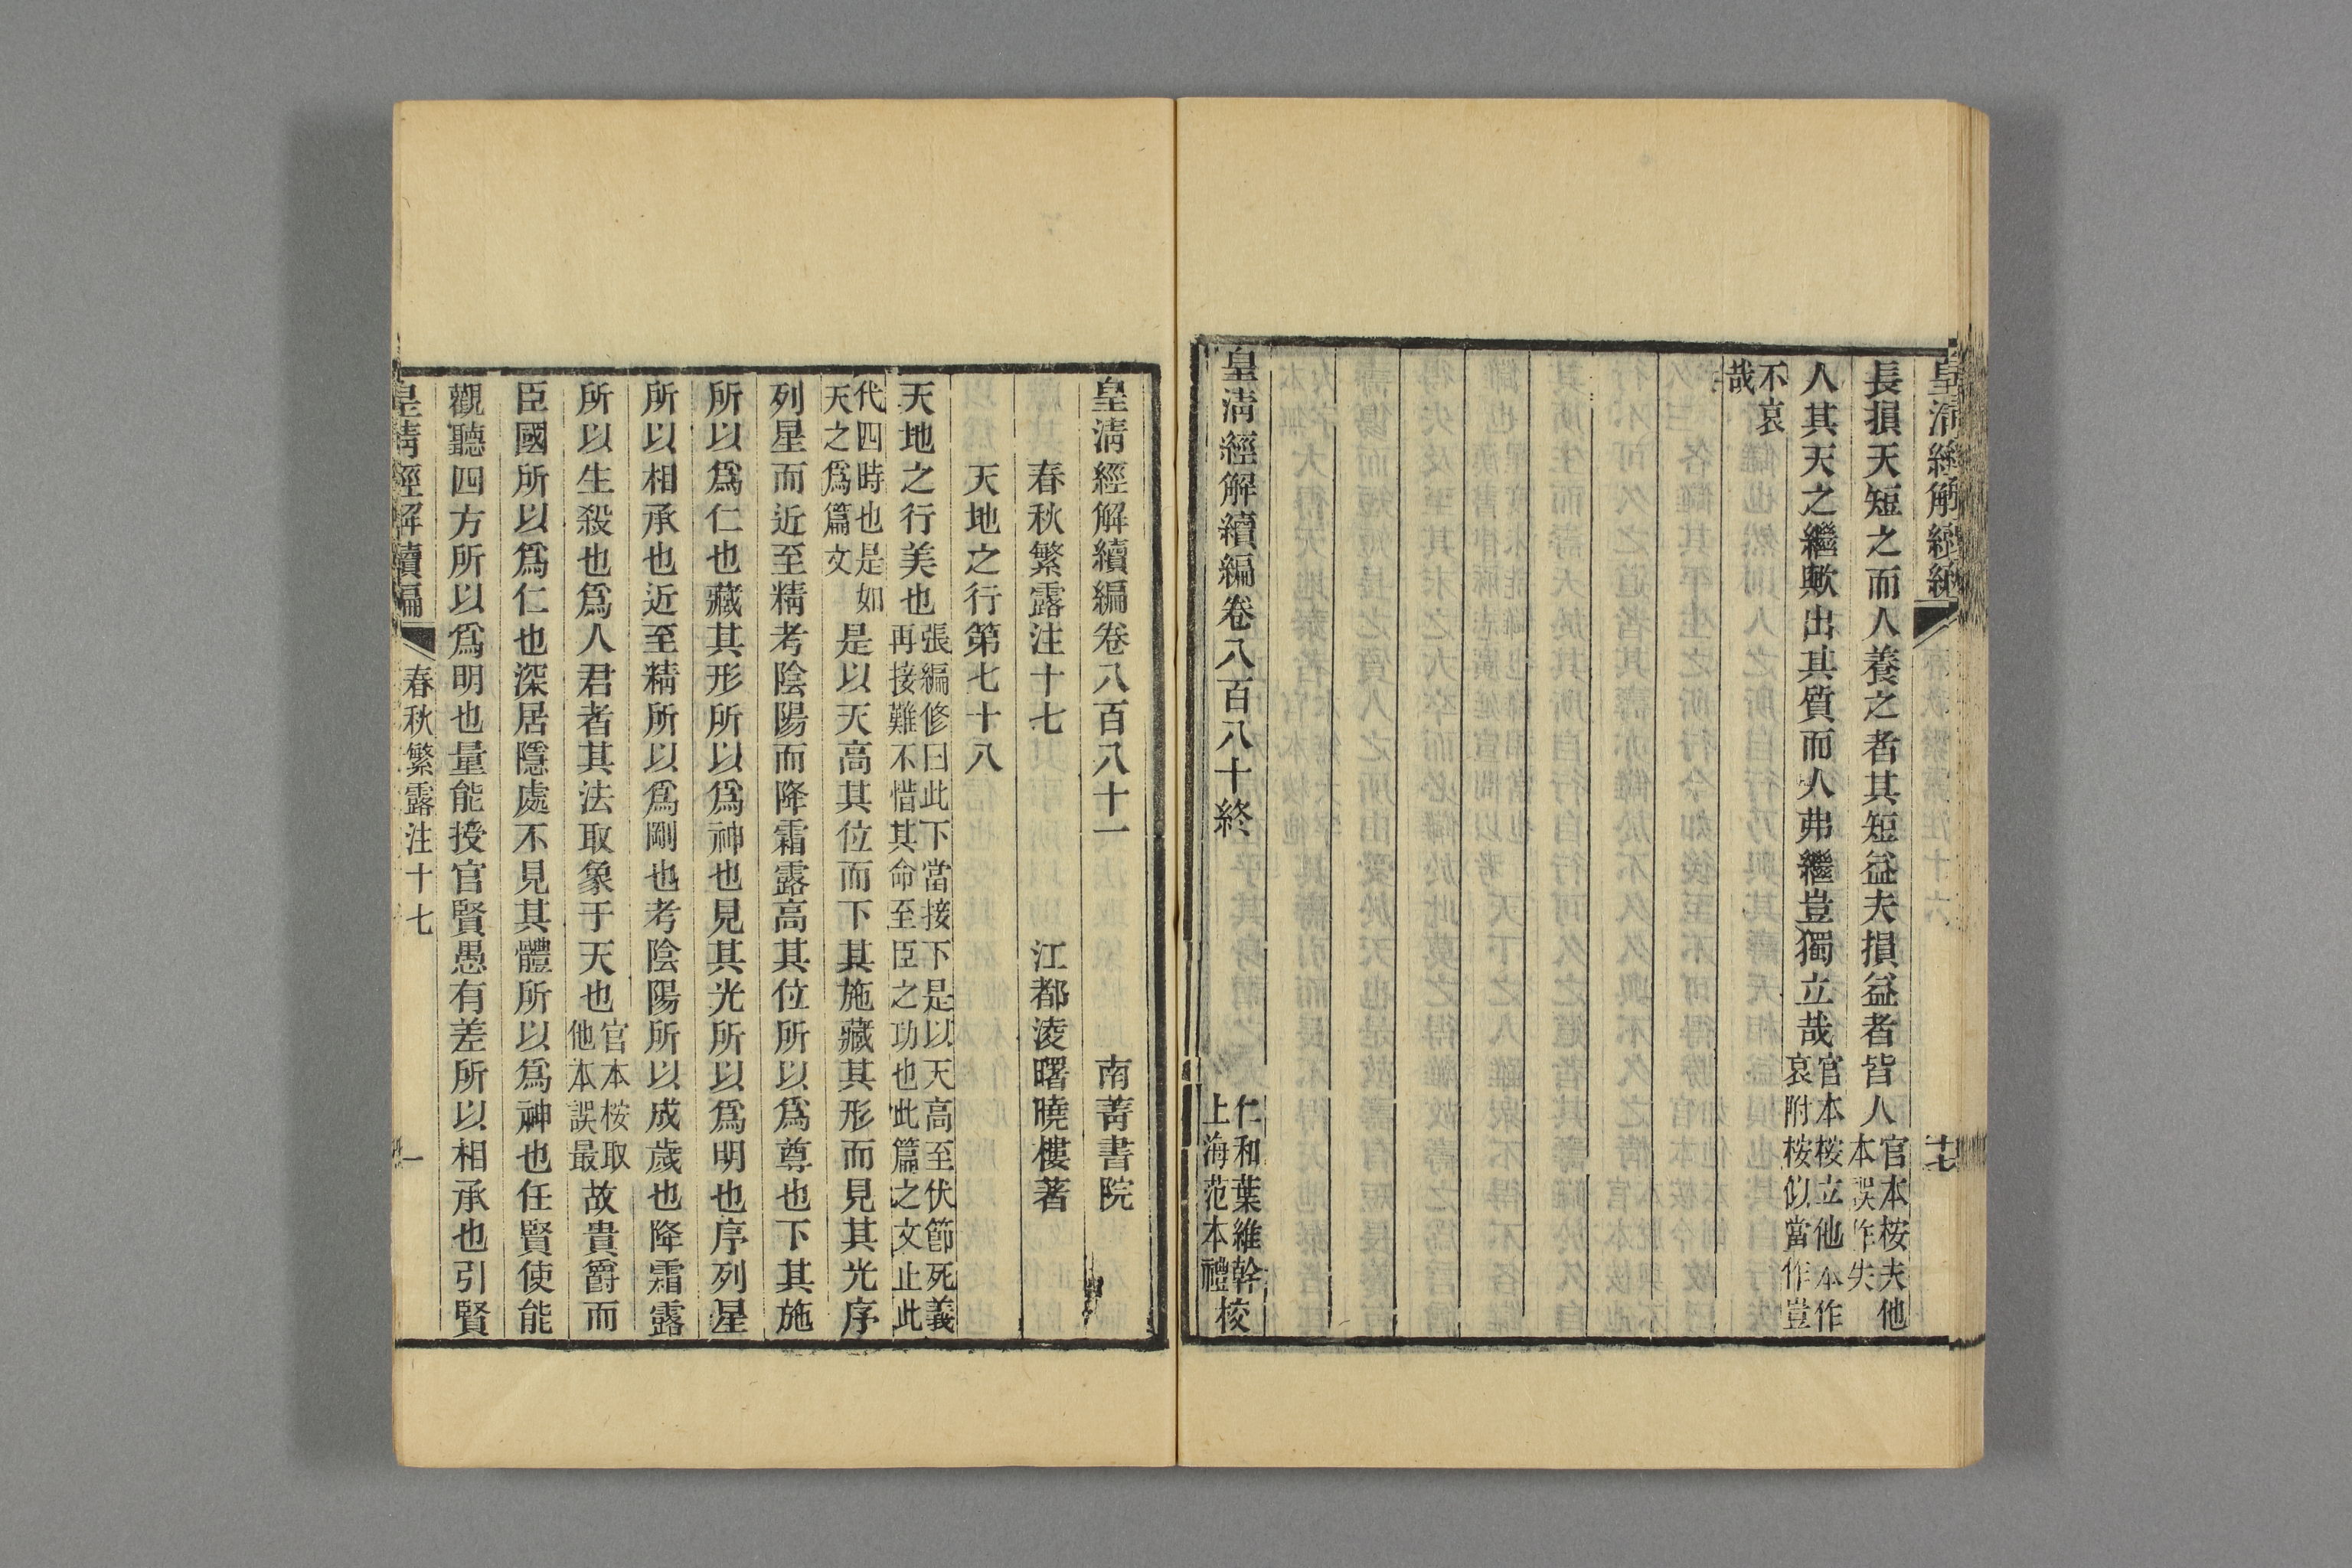 皇清經解續編
十七
長損天短之而人養之者其短益夫損益者皆人官本桉夫他本誤作失
人其天之繼歟出其質而人弗繼豈獨立哉官本桉立他本作哀附桉似當作豈
不哀哉
皇清經解續編卷八百八十終
仁和葉維幹
上海范本禮校
皇清經解續編卷八百八十一 南菁書院
春秋繁露注十七 江都淩曙曉樓著
天地之行第七十八
天地之行美也張編修曰此下當接下是以天高至伏節死義再接難不惜其命至臣之功也此篇之文止此
代四時也是如天之為篇文是以天高其位而下其施藏其形而見其光序
列星而近至精考陰陽而降霜露高其位所以爲尊也下其施
所以爲仁也藏其形所以爲神也見其光所以爲明也序列星
所以相承也近至精所以爲剛也考陰陽所以成歲也降霜露
所以生殺也爲人君者其法取象于天也官本桉取他本誤最故貴爵而
臣國所以爲仁也深居隱處不見其體所以爲神也任賢使能
觀聽四方所以爲明也量能授官賢愚有差所以相承也引賢
皇清經解續編 春秋繁露注十七 一